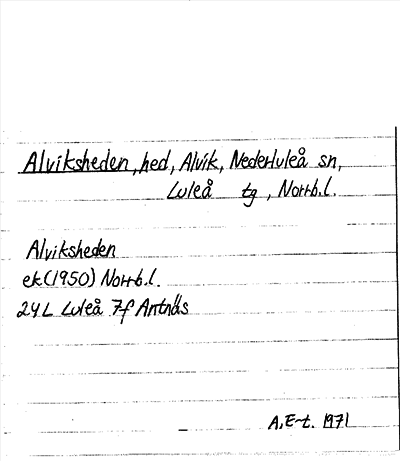 Alviksheden, hed, Alvik, Nederluleå sn,
Luleå tg, Norrb.l.
Alviksheden
ek(1950) Norrb.l.
24L Luleå 7f Antnäs
A.E-t. 1971